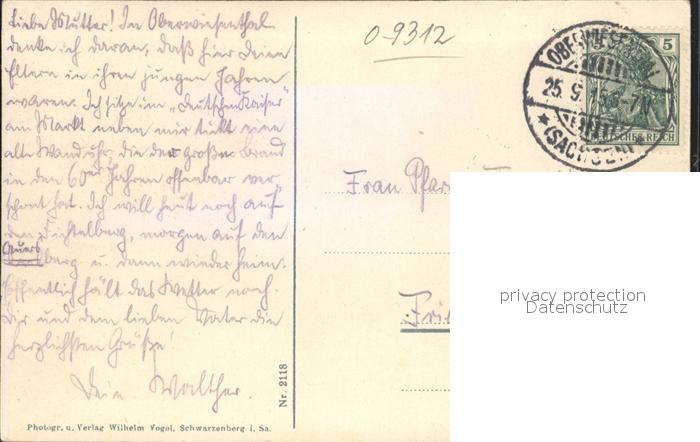 Liebe Mutter! In Oberwiesenthal
denke ich daran, daß hier deine
Eltern in ihren jungen Jahren
waren. Ich sitze im „Deutschen Kaiser"
am Markt neben mir tickt eine
alte Wanduhr, die der große Brand
in den 60er Jahren offenbar ver-
schont hat. Ich will heut noch auf
den Fichtelberg, morgen auf den
Auersberg u. dann wieder heim.
Hoffentlich hält das Wetter noch.
Dir und dem lieben Vater die
herzlichsten Grüße!
Dein Walther.
Photogr. u. Verlag Wilhelm Vogel, Schwarzenberg i. Sa.
Nr. 2118
0-9312
OBERWIESENTHAL
25.9. 6-7N
* (SACHSEN)
5
DEUTSCHES REICH
Frau Pfar
privacy protection
Datenschutz